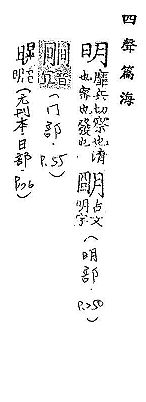 四聲篇海
明靡兵切察也清
也審也發也 朙古文
明字(明部.P.250)
(门部.P.55)
明(元刊本.日部.P.26)